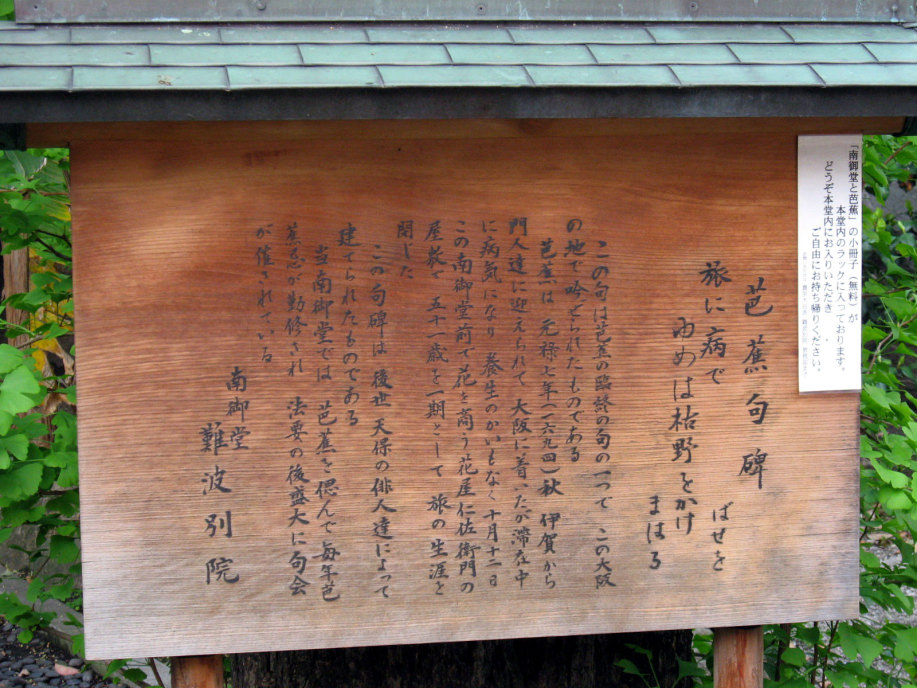 「南御堂と芭蕉」の小冊子(無料)が
本堂内のラックに入っております。
どうぞ本堂内にお入りいただき
ご自由にお持ち帰りください。
芭蕉句碑
ばせを
旅に病で
ゆめは枯野をかけ
まはる
この句は芭蕉の臨終の句の一つで この大阪
の地で吟ぜられたものである
芭蕉は 元禄七年(一六九四)秋 伊賀から
門人達に迎えられて 大阪に着いたが滞在中
に病気になり 養生のかいもなく十月十二日
この南御堂前で花を商う花屋仁佐衛門の
屋敷で 五十一歳を一期として 旅の生涯を
閉じた
この句碑は後世 天保の俳人達によって
建てられたものである
当南御堂では 芭蕉を偲んで毎年芭
蕉忌が勤修され 法要の後盛大に句会
が催されている
南御堂
難波別院